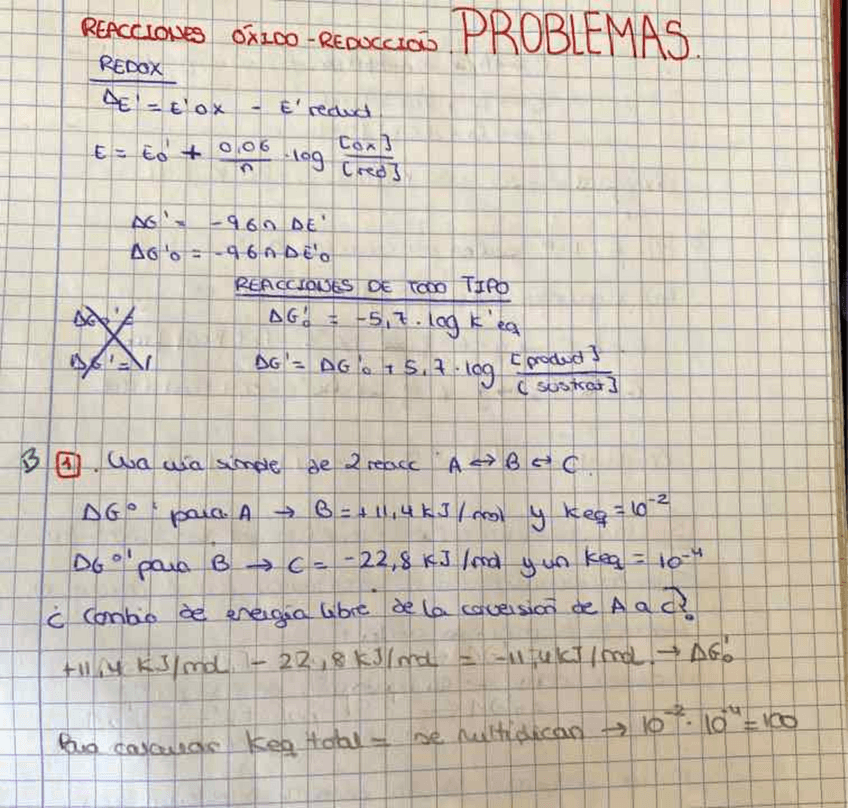 REACCIONES ÓXIDO-REDUCCIÓN. PROBLEMAS.
REDOX
ΔE' = E'ox - E'reduct
E = E₀' + 0,06/n · log [ox]/[red]
ΔG' = -96n ΔE'
ΔG'₀ = -96n ΔE'₀
REACCIONES DE TODO TIPO
ΔG'₀ = -5,7 · log K'eq
ΔG' = ΔG'₀ + 5,7 · log [product]/[sustrat]
B 1. Una vía simple de 2 reacc A ↔ B ↔ C.
ΔG°' para A → B = +11,4 kJ/mol y Keq = 10⁻²
ΔG°' para B → C = -22,8 kJ/mol y un Keq = 10⁻⁴
¿ Cambio de energía libre de la conversión de A a C?
+11,4 kJ/mol - 22,8 kJ/mol = -11,4 kJ/mol. → ΔG'₀
Para calcular Keq total = se multiplican → 10⁻² · 10⁻⁴ = 100